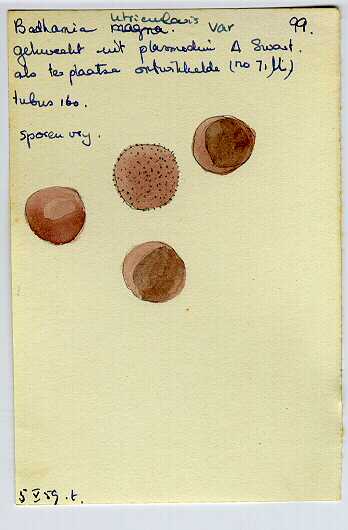 utricularis
Badhamia magna. Var 99.
gekweekt uit plasmodium A Swart.
als ter plaatse ontwikkelde (no 71,
tubus 160.
sporen vry.
5 V 59. t.